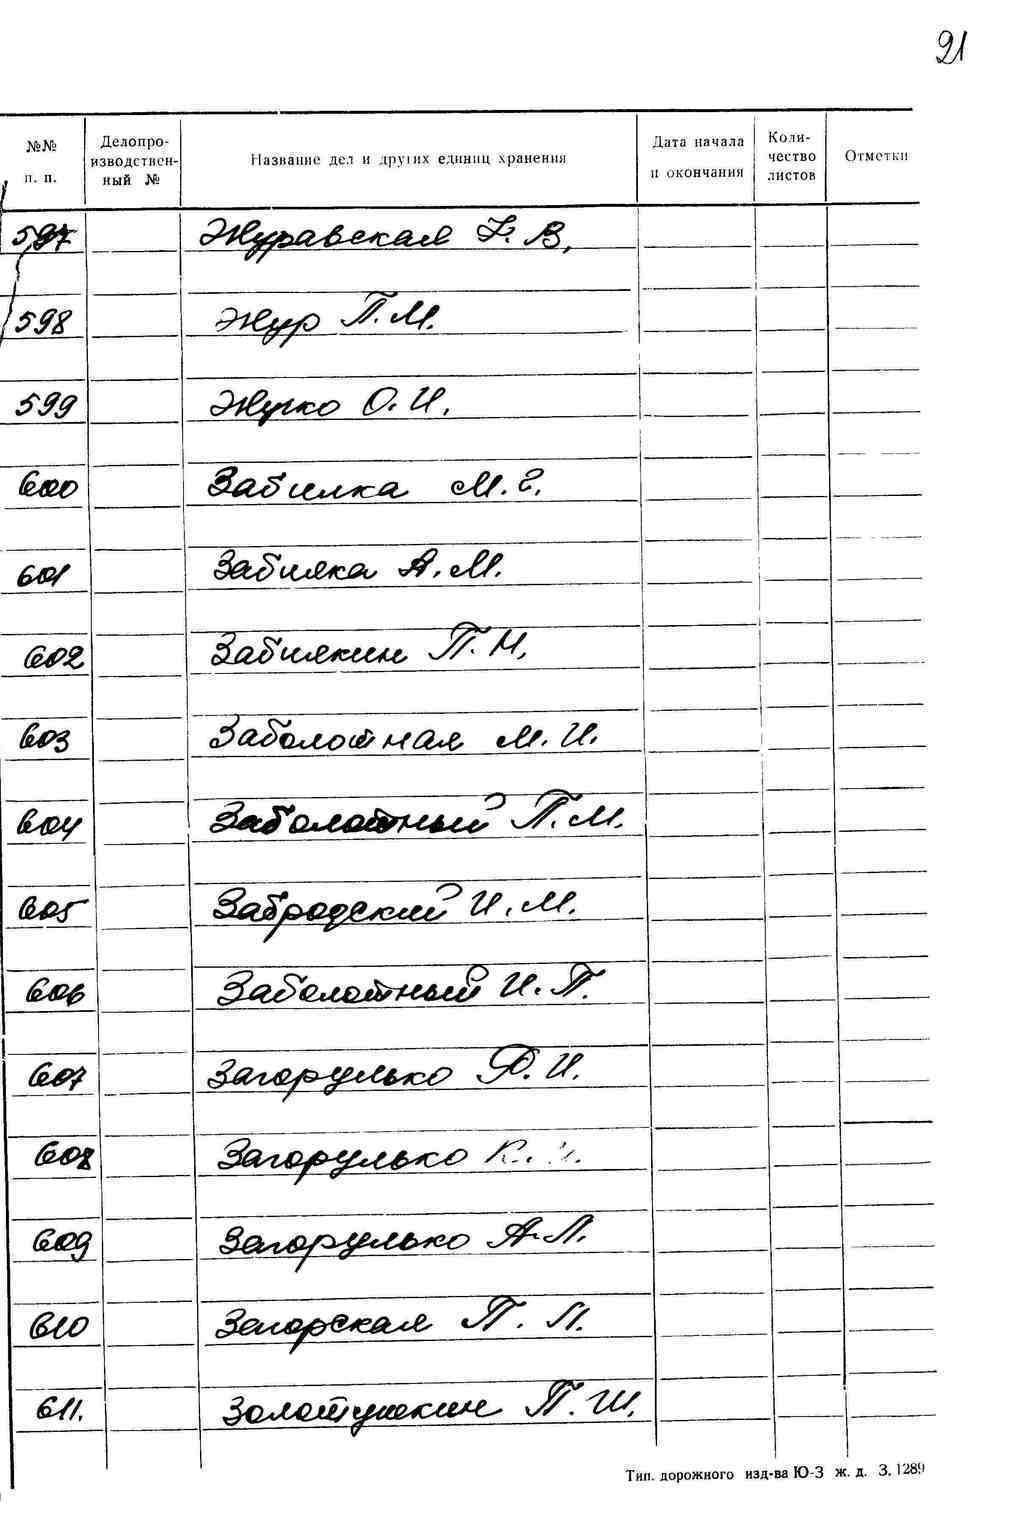 21
№№ п. п. Делопроизводствен-ный № Название дел и других единиц хранения Дата начала и окончания Коли-чество листов Отметки
597 Журавская К. В.
598 Жур П. М.
599 Жучко О. И.
600 Забилка М. Г.
601 Забилка А. М.
602 Забилкин П. Н.
603 Заболотная М. И.
604 Заболотный П. М.
605 Забродский И. М.
606 Заболотный И. П.
607 Загорулько Ф. И.
608 Загорулько К. И.
609 Загорулько А. Л.
610 Загорская П. П.
611. Золотушкин П. Ш.
Тип. дорожного изд-ва Ю-З ж. д. З. 1289